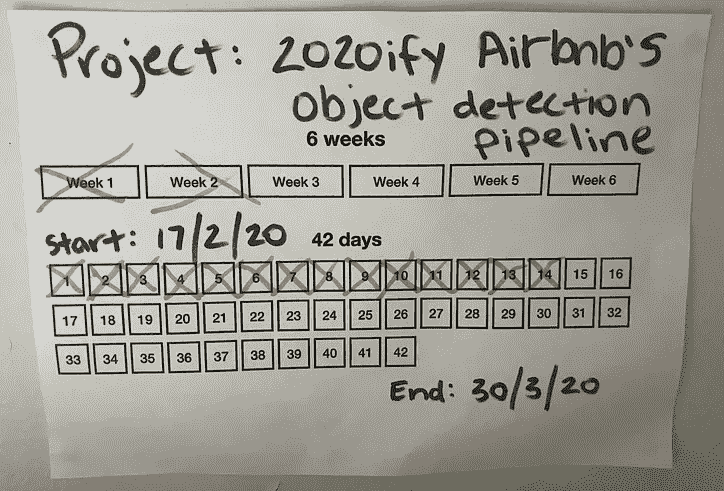 Project: 2020ify Airbnb's
object detection
6 weeks pipeline
Week 1 Week 2 Week 3 Week 4 Week 5 Week 6
Start: 17/2/20 42 days
1 2 3 4 5 6 7 8 9 10 11 12 13 14 15 16
17 18 19 20 21 22 23 24 25 26 27 28 29 30 31 32
33 34 35 36 37 38 39 40 41 42
End: 30/3/20